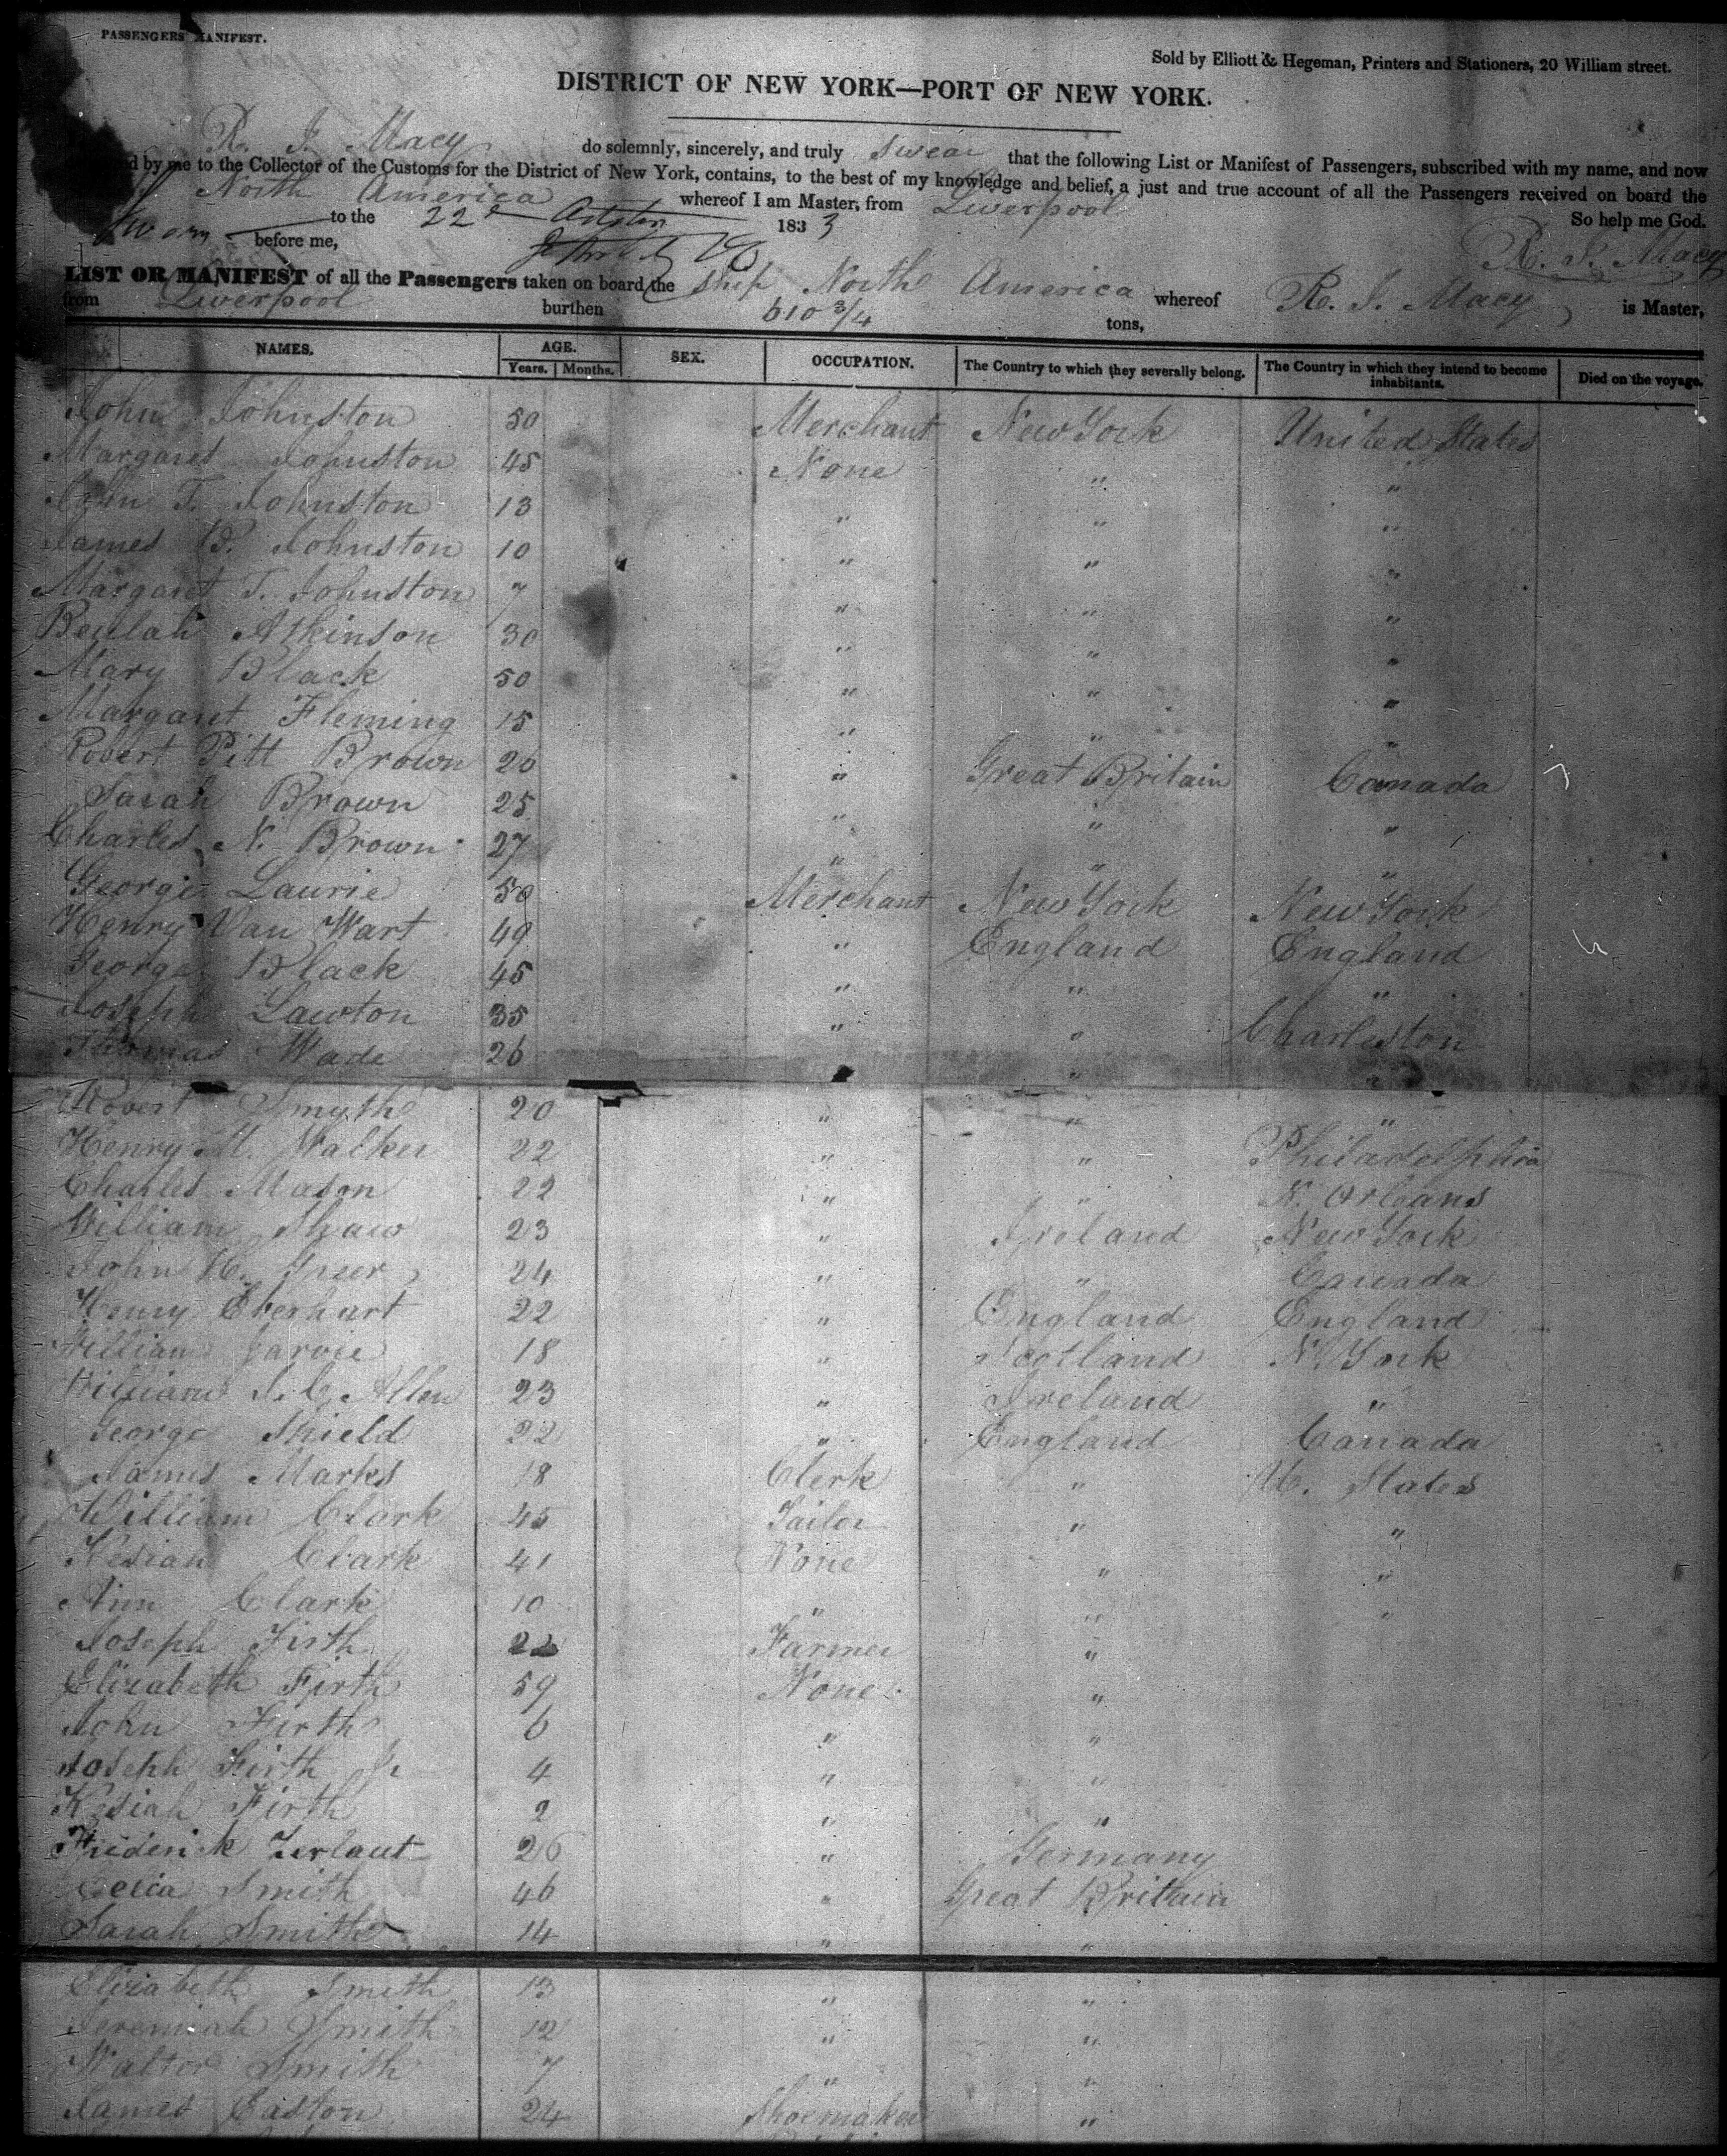 PASSENGERS' MANIFEST.
Sold by Elliott & Hegeman, Printers and Stationers, 20 William street.
DISTRICT OF NEW YORK—PORT OF NEW YORK.
R. J. Macy do solemnly, sincerely, and truly swear that the following List or Manifest of Passengers, subscribed with my name, and now
by me to the Collector of the Customs for the District of New York, contains, to the best of my knowledge and belief, a just and true account of all the Passengers received on board the
North America whereof I am Master, from Liverpool
Sworn to the 22d October 1833 So help me God.
before me, R. J. Macy
LIST OR MANIFEST of all the Passengers taken on board the Ship North America whereof R. J. Macy, is Master,
from Liverpool burthen 610 3/4 tons,
NAMES. AGE. SEX. OCCUPATION. The Country to which they severally belong. The Country in which they intend to become inhabitants. Died on the voyage.
Years. Months.
John Johnston 50 Merchant New York United States
Margaret Johnston 45 None " "
John T. Johnston 13 " " "
James B. Johnston 10 " " "
Margaret T. Johnston 7 " " "
Beulah Atkinson 30 " " "
Mary Black 50 " " "
Margaret Fleming 15 " " "
Robert Pitt Brown 26 " Great Britain Canada
Sarah Brown 25 " " "
Charles N. Brown 27 " " "
George Laurie 50 Merchant New York New York
Henry Van Wart 49 " England England
George Black 45 " " "
Joseph Lawton 35 " " Charleston
Thomas Wade 26 " " "
Robert Smyth 20 " " "
Henry M. Walker 22 " " Philadelphia
Charles Mason 22 " " N. Orleans
William Shaw 23 " Ireland New York
John H. Greer 24 " " Canada
Henry Eberhart 22 " England England
William Jarvie 18 " Scotland N. York
William J. C. Allen 23 " Ireland "
George Shield 22 " England Canada
James Marks 18 Clerk " U. States
William Clark 45 Tailor " "
Kesiah Clark 41 None " "
Ann Clark 10 " " "
Joseph Firth 22 Farmer "
Elizabeth Firth 59 None "
John Firth 6 " "
Joseph Firth Jr 4 " "
Kesiah Firth 2 " "
Frederick Zerlaut 26 " Germany
Smith 46 " Great Britain
Sarah Smith 14 " "
Elizabeth Smith 13 " "
Jeremiah Smith 12 " "
Walter Smith 7 " "
James Easton 24 Shoemaker "